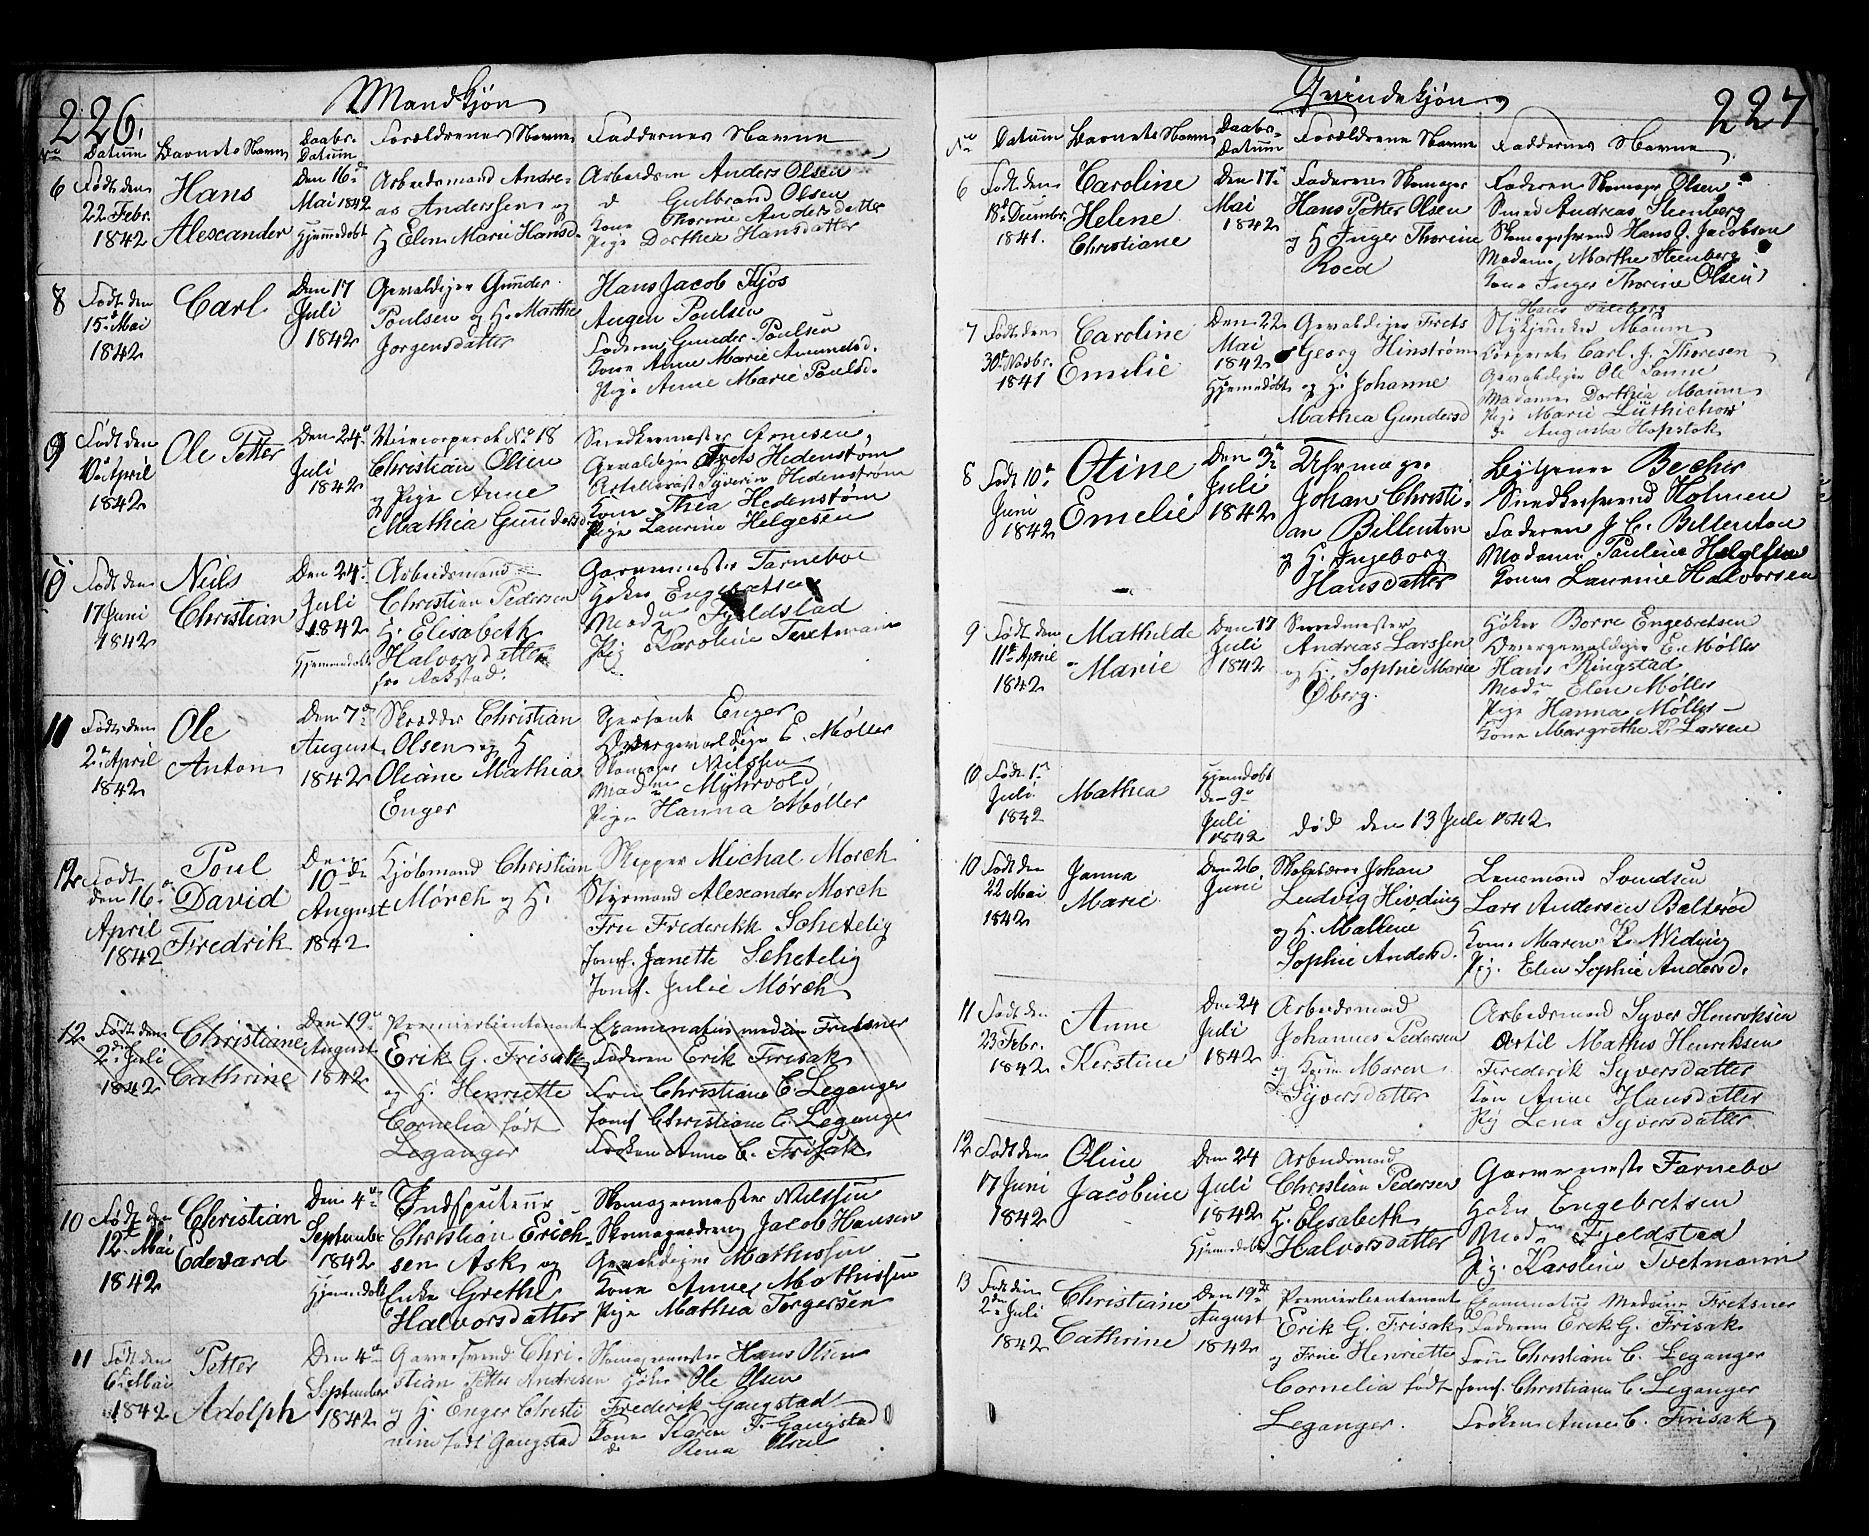 226.
Mandkjøn
No
Datum
Barnets Navn
Daabs-
Datum
Forældrenes Navne
Faddernes Navne
6
Født den
22 Febr.
1842
Hans
Alexander
Den 16de
Mai 1842
Hjemmedøbt
Arbeidsmand Andre-
as Andersen og
H Elen Marie Hansd.
Arbeidsm Anders Olsen
d Gulbrand Olsen
Kone Thorine Andersdatter
Pige Dorthea Hansdatter
8
Født den
15de Mai
1842
Carl
Den 17
Juli
1842
Gevaldiger Gunder
Poulsen og H. Marthe
Jorgensdatter
Hans Jacob Kjos
Augen Poulsen
Faderen Gunder Poulsen
Kone Anne Marie Amundsd.
Pige Anne Marie Poulsd.
9
Født den
10de April
1842
Ole Petter
Den 24de
Juli
1842
Viicecorporal No 18
Christian Olsen
og Pige Anne
Mathea Gundersd
Snedkermester Arnesen,
Gevaldiger Frets Hedenstøm
Artillerist Syverin Hedenstrøm
Kone Thea Hedenstøm
Pige Laurine Helgesen
10
Født den
17 Juni
1842
Neils
Christian
Den 24de
Juli
1842
Hjemmedøbt
Arbeidsmand
Christian Pedersen
H. Elisabeth
Halvorsdatter
fra Rakstad.
Garvermester Farneboe
Høker Engebretsen
Madm Fjeldstad
Pig Karoline Tvetmann
11
Født den
2de April
1842
Ole
Anton
Den 7de
August
1842
Skrædder Christian
Olsen og H
Oliane Mathea
Enger
Sersent Enger
Overgevaldige E. Møller
Skomager Nilssen
Madme Myhrvold
Pige Hanna Møller
12
Født
den 16de
April
1842
Poul
David
Fredrik
Den
10de
August
1842
Kjøbmand Christian
Mørch og H.
Skipper Michal Morch
Styrmand Alexander Morch
Fru Frederikk Schetelig
Jomf. Janette Schetelig
Jomf. Julie Mørch
12
Født den
2den Juli
1842
Christiane
Cathrine
Den 19de
August
1842
Premierlieutenant
Erik G. Frisak
og H. Henriette
Cornelia født
Leganger
Examinatus medicin Fretsner
Faderen Erik Frisak
Fru Christiane C Leganger
Jomf Christiane C. Leganger
Frøken Anne C. Frisak
10
Født den
12te Mai
1842
Christian
Edevard
Den 4de
September
1842
Hjemmedøbt
Indspecteur
Christian Erich-
sen Ask og
Enke Grethe
Halvorsdatter
Skomagermester Nilssen
Skomagerdreng Jacob Hansen
Gevaldiger Mathissen
Kone Anne Mathissen
Pige Mathea Torgersen
11
Født den
6te Mai
1842
Petter
Adolph
Den 4de
September
1842
Garversvend Chri-
stian Petter Andresen
og H. Enger Christi
nine født Gangstad
Skomagermester Hans Olsen
Høker Ole Olsen
Frederik Gangstad
Kone Karen F. Gangstad
do Rena Olsen
227
Qvindekjøn
No
Datum
Barnets Navn
Daabs-
Datum
Forældrene Navne
Faddernes Navne
6
Født den
18de Decembr.
1841.
Caroline
Helene
Christiane
Den 17de
Mai
1842
Faderen Skomager
Hans Petter Olsen
og H Inger Thorine
Roed
Faderen Skomager Olsen
Smed Andreas Steenberg
Skomagersvend Hans J. Jacobsen
Madame Marthe Steenberg
Kone Inger Thorine Olsen
7
Født den
30te Novbr.
1841
Caroline
Emelie
Den 22
Mai
1842
Hjemmedøbt
Gevaldiger Frets
Georg Hinstrøm
og H. Johanne
Mathea Gundersd
Hans Faleberg
Stykjunker Maum
Corporal Carl J. Thoresen
Gevaldiger Ole Sanne
Madame Dorthea Maum
Pige Marie Luthichow
do Augusta Hopstok
8
Født 10de
Juni
1842
Oline
Emelie
Den 3de
Juli
1842
Uhrmager
Johan Christi-
an Billenton
og H. Ingeborg
Hansdatter
Bytjener Becher
Snedkersvend Holmen
Faderen J. C. Billenton
Madame Pauline Helgesen
Konen Laurine Halvorsen
9
Født den
11te April
1842
Mathilde
Marie
Den 17
Juli
1842
Smedmester
Andreas Larssen
og H. Sophie Marie
Øberg.
Høker Borre Engebretsen
Overgevaldiger E. Møller
Hans Ringstad
Madm Elen Møller
Pige Hanna Møller
Kone Margrethe K. Larsen
10
Født 1de
Juli
1842
Mathea
Hjemdøbt
den 9de
Juli
1842
Død den 13 Juli 1842
10
Født den
22 Mai
1842
Janna
Marie
Den 26
Juni
Skolelærer Johan
Ludvig Hivding
og H. Mallene
Sophie Andersd.
Lensmand Svendsen
Lars Andersen Balterød
Kone Maren K. Widing
Pig. Elen Sophie Andersd.
11
Født den
23 Febr.
1842
Anne
Kerstine
Den 24
Juli
1842
Arbeidsmand
Johannes Pedersen
og Kone Maren
Syversdatter
Arbeidsmand Syver Henriksen
Artil Mathis Henriksen
Frederik Syversdatter
Kon Anne Hansdatter
Pig Lena Syversdatter
12
Født den
17 Juni
1842
Oline
Jacobine
Den 24
Juli
1842
Hjemmedøbt
Arbeidsmand
Christian Pedersen
H. Elisabeth
Halvorsdatter
Garvermest Farnebo
Høker Engebretsen
Madm Fjeldstad
Pig. Karoline Tvetmann
13
Født den
2den Juli
1842
Christiane
Cathrine
Den 19de
August
1842
Premierlieutenant
Erik G. Frisak
og Frue Henriette
Cornelia født
Leganger.
Examinatus Medicin Fretsner
Faderen Erik G. Frisak
Frue Christiane C. Leganger
Jomf. Christiane C. Leganger
Frøken Anne C. Frisak